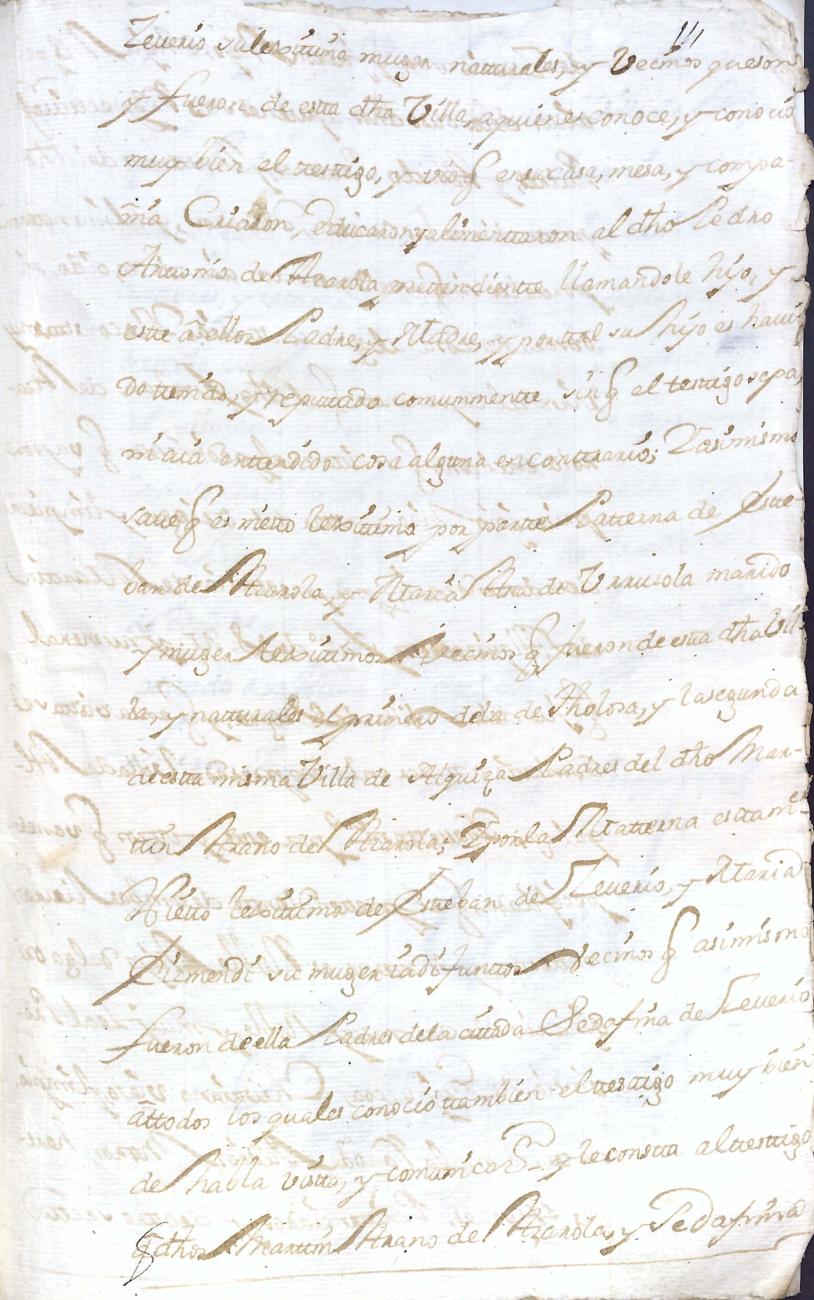 Zeverio su lexittima muger natturales, y Vecinos que son
y fueron de esta dha Villa, a quienes conoce, y conocio
muy bien el testigo, y vio q en su casa, mesa, y compa-
ñia Criaron, educaron y alimenttaron al dho Pedro
Anttonio de Atarola llamandole hijo, y
este a ellos Padre, y Madre, y por tal su hijo es havi-
do ttenido, y reputtado comunmentte sin q el testigo sepa,
ni aia enttendido cosa alguna en conttrario; Y asimismo
save q es nietto lexittimo por partte Patterna de Este-
ban de Atarola, y Maria Ana de Urruzola marido
y muger lexittimos Vecinos q fueron de esta dha Vi-
lla, y natturales el primero de la de Tholosa, y la segunda
de esta misma Villa de Alquiza Padres del dho Mar-
ttin Arano de Atarola; Y por la Matterna es ttam.n
Nietto lexittimo de Esteban de Zeverio, y Maria
Elizmendi su muger ia difunttos Vecinos q asimismo
fueron de ella Padres de la cittada Serafina de Zeverio
a ttodos los quales conocio ttambien el testigo muy bien
de habla vistta, y comunicaz.on y le constta al testtigo
q dhos Marttin Arano de Atarola, y Serafina